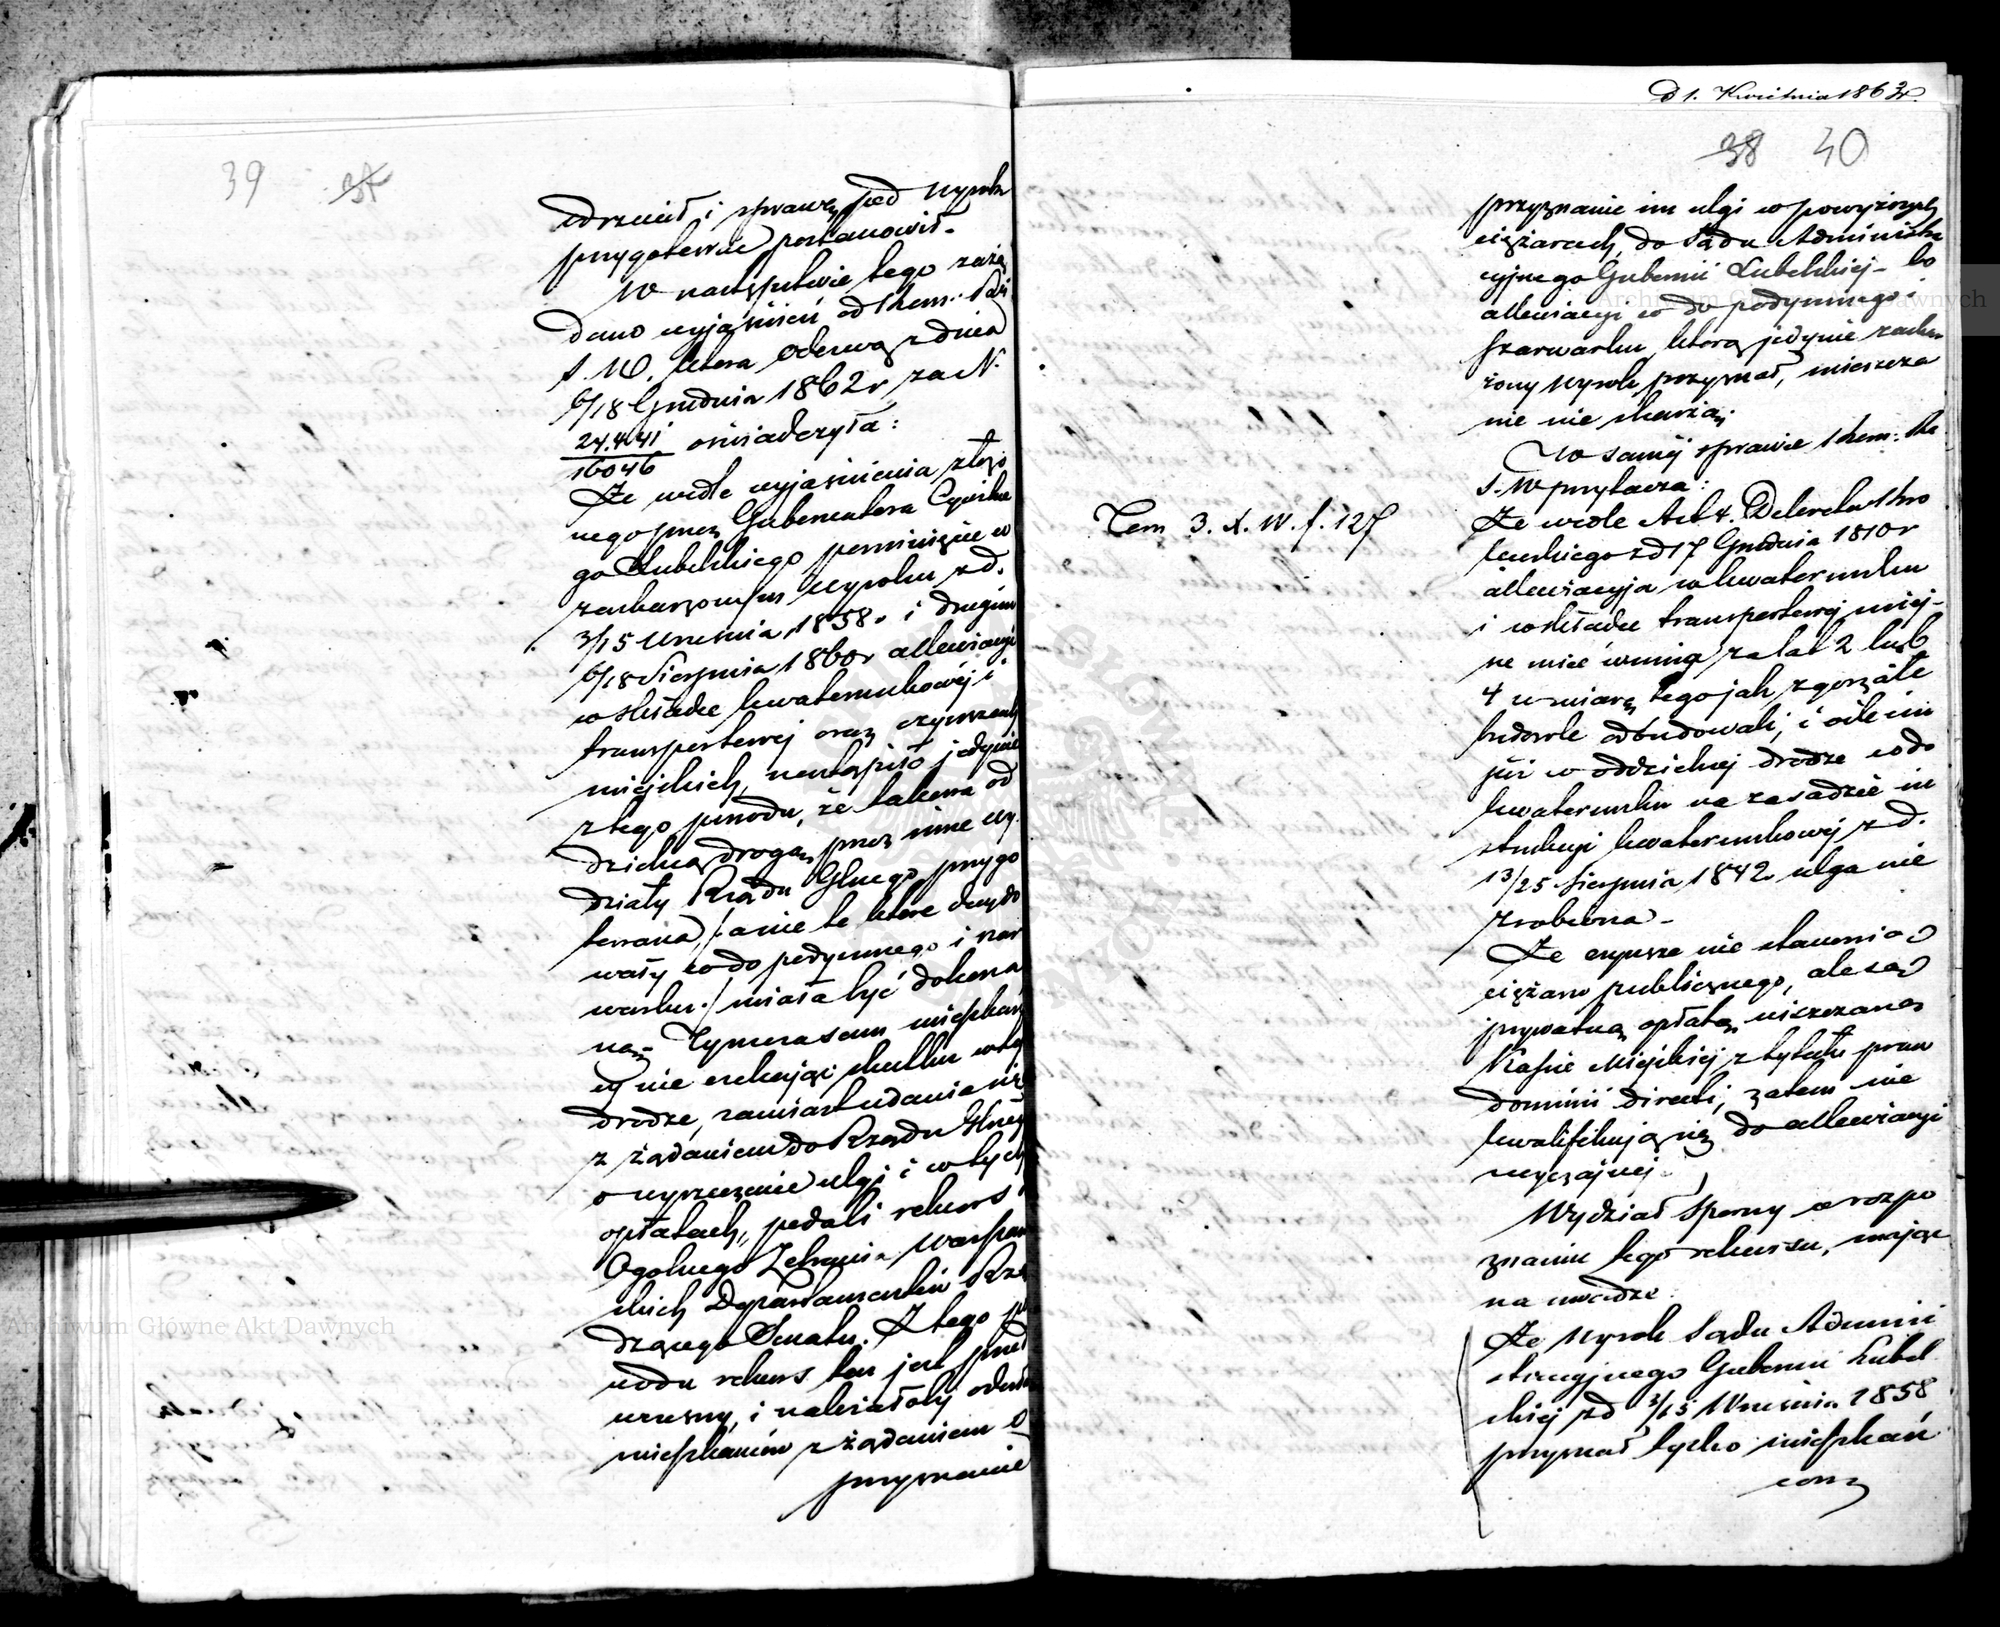 39
odrzucił i sprawę pod wyrok
przygotować postanowił.
W następstwie tego zażą
dano wyjaśnień od Kom: Rz
S. W. która odezwą z dnia
6/18 Grudnia 1862 r za N.
24.441/16046 oświadczyła:
Że wedle wyjaśnienia złożo
nego przez Gubernatora Cywilne
go Lubelskiego pominięcie w
zaskarżonym wyroku z d.
3/15 Września 1858 i drugim
6/18 Sierpnia 1860 r allewiacyi
w składce kwaterunkowéj i
transportowéj oraz czynszach
miejskich, nastąpiło jedynie
z tego powodu, że takowa od
dzielną drogą przez inne wy
działy Rządu Glnego przygo
towana, /: a nie te które decydo
wały co do podymnego i szar
warku :/ miała być dokona
ną. Tymczasem mieszkań
cy nie czekając skutku w téj
drodze, zamiast udania się
z żądaniem do Rządu Glneg
o wyrzeczenie ulgi i w tych
opłatach, podali rekurs
Ogólnego Zebrania Warszaw
skich Departamentów Rzą
dzącego Senatu. Z tego po
wodu rekurs ten jest przed
wczesny, i należałoby odesłać
mieszkańców z żądaniem o
przyznanie
D 1. Kwietnia 1863 r.
38 40
przyznanie im ulgi w powyższych
ciężarach, do Sądu Administra
cyjnego Gubernii Lubelskiej – bo
allewiacyi co do podymnego i
szarwarku, którą jedynie zaskar
żony wyrok przyznał, mieszcza
nie nie skarżą.
W saméj sprawie Kom: Rz
S. W przytacza:
Tom 3. X. W. f. 127
Że wedle Art 4. Dekretu Kró
lewskiego z d 17 Grudnia 1810 r
allewiacyja w kwaterunku
i w składce transportowéj miej-
sce mieć winna za lat 2 lub
4 w miarę tego jak zgorzałe
budowle odbudowali, i o ile im
już w oddzielnej drodze co do
kwaterunku na zasadzie in
strukcyi kwaterunkowéj z d.
13/25 Sierpnia 1842 ulga nie
zrobiona –
Że czynsze nie stanowią
ciężaru publicznego, ale są
prywatną opłatą uiszczaną
Kasie Miejskiej z tytułu praw
dominii directi, zatem nie
kwalifikują się do allewiacyi
zwyczajnej.
Wydział Sporny w rozpo
znaniu tego rekursu, mając
na uwadze:
Że wyrok Sądu Admini
stracyjnego Gubernii Lubel
skiej z d 3/15 Września 1858
przyznał tylko mieszkań
com